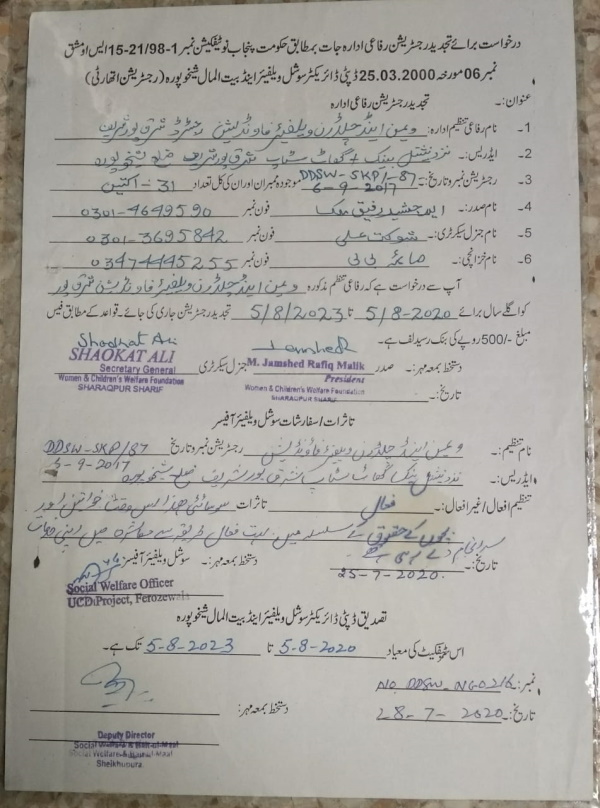 درخواست برائے تجدید رجسٹریشن رفاعی ادارہ جات بمطابق حکومت پنجاب نوٹیفکیشن نمبر 1-98/21-15 ایس او مشق
نمبر 06 مورخہ 25.03.2000 ڈپٹی ڈائریکٹر سوشل ویلفیئر اینڈ بیت المال شیخوپورہ (رجسٹریشن اتھارٹی)
عنوان:۔ تجدید رجسٹریشن رفاعی ادارہ
1- نام رفاعی تنظیم ادارہ:۔ ویمن اینڈ چلڈرن ویلفیئر فاونڈیشن رجسٹرڈ شرقپور شریف
2- ایڈریس:۔ نزد نیشنل بینک گھاٹ سٹاپ شرقپور شریف ضلع شیخوپورہ
3- رجسٹریشن نمبر و تاریخ:۔ DDSW-SKP/-87 6-9-2017 موجودہ ممبران اور ان کی کل تعداد 31 - اکتیس
4- نام صدر:۔ ایم جمشید رفیق ملک فون نمبر 0301-4649590
5- نام جنرل سیکرٹری:۔ شوکت علی فون نمبر 0301-3695842
6- نام خزانچی:۔ صائمہ بی بی فون نمبر 0347-4445255
آپ سے درخواست ہے کہ رفاعی تنظیم مذکورہ ویمن اینڈ چلڈرن ویلفیئر فاونڈیشن شرقپور
کو اگلے سال برائے 5/8-2020 تا 5/8/2023 تجدید رجسٹریشن جاری کی جائے۔ قواعد کے مطابق فیس
مبلغ -/500 روپے کی بنک رسید لف ہے۔
Jamshed Shaokat Ali
دستخط بمعہ مہر:۔ صدر M. Jamshed Rafiq Malik جنرل سیکرٹری SHAOKAT ALI
President Secretary General
Women & Children's Welfare Foundation Women & Children's Welfare Foundation
SHARAQPUR SHARIF SHARAQPUR SHARIF
تاریخ:۔
تاثرات / سفارشات سوشل ویلفیئر آفیسر
نام تنظیم:۔ ویمن اینڈ چلڈرن ویلفیئر فاونڈیشن رجسٹریشن نمبر و تاریخ DDSW-SKP/87
6-9-2017
ایڈریس:۔ نزد نیشنل بینک گھاٹ سٹاپ شرقپور شریف ضلع شیخوپورہ
تنظیم افعال / غیر افعال:۔ فعال تاثرات سوسائٹی ھذا اس وقت خواتین اور
بچوں کے حقوق کے سلسلہ میں بہت فعال طریقہ سے معاشرہ میں اپنی خدمات
سرانجام دے رہی ہے
تاریخ:۔ 25-7-2020. دستخط بمعہ مہر:۔ سوشل ویلفیئر آفیسر
Social Welfare Officer
UCD Project, Ferozewala
تصدیق ڈپٹی ڈائریکٹر سوشل ویلفیئر اینڈ بیت المال شیخوپورہ
اس سرٹیفکیٹ کی معیاد 5-8-2020 تا 5-8-2023 تک ہے۔
نمبر:۔ NO. DDSW-NGO216
تاریخ:۔ 28-7-2020 دستخط بمعہ مہر:۔
Deputy Director
Social Welfare & Bait-ul-Maal
Sheikhupura